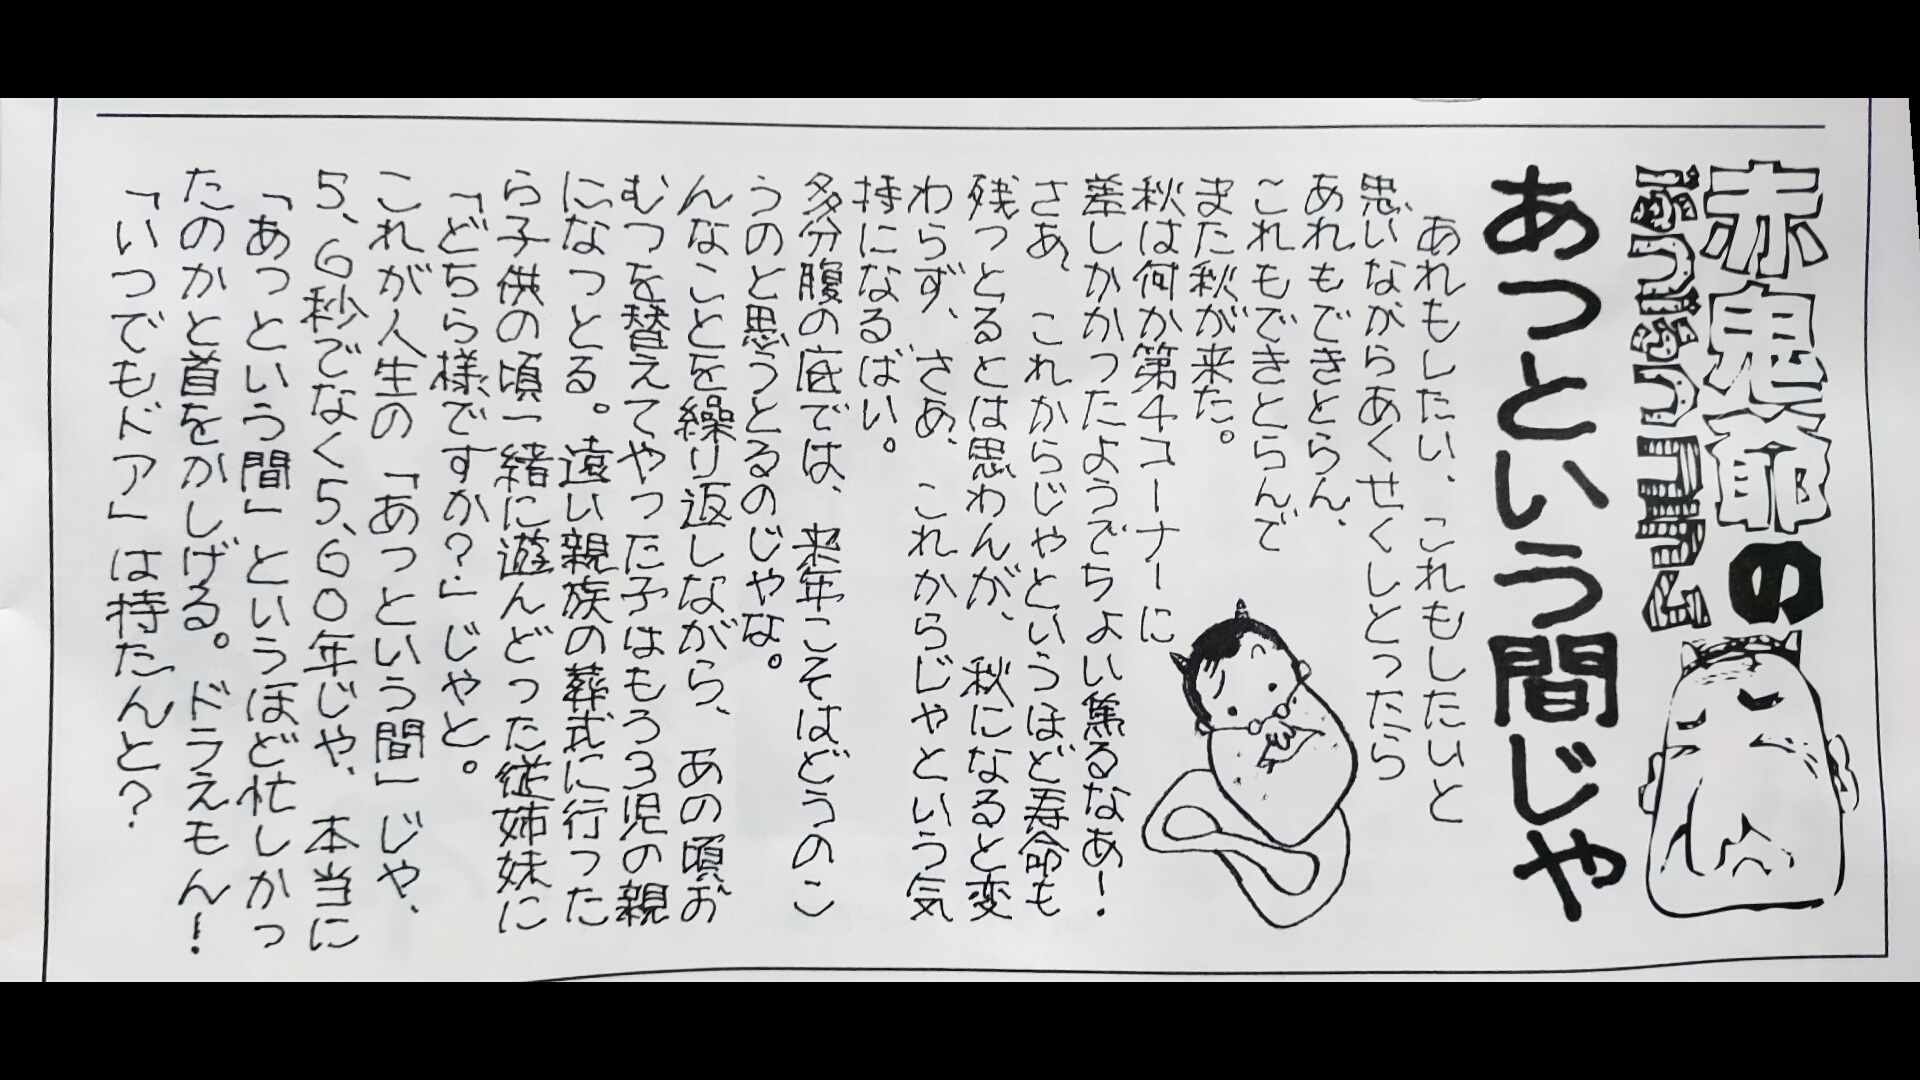 赤鬼爺の
ぶつぶつコラム
あっという間じゃ
あれもしたい、これもしたいと
思いながらあくせくしとったら
あれもできとらん、
これもできとらんで
また秋が来た。
秋は何か第4コーナーに
差しかかったようでちょい焦るなあ！
さあ、これからじゃというほど寿命も
残っとるとは思わんが、秋になると変
わらず、さあ、これからじゃという気
持になるばい。
多分腹の底では、来年こそはどうのこ
うのと思うとるのじゃな。
んなことを繰り返しながら、あの頃お
むつを替えてやった子はもう3児の親
になっとる。遠い親族の葬式に行った
ら子供の頃一緒に遊んどった従姉妹に
「どちら様ですか？」じゃと。
これが人生の「あっという間」じゃ、
5、6秒でなく5、60年じゃ、本当に
「あっという間」というほど忙しかっ
たのかと首をかしげる。ドラえもん！
「いつでもドア」は持たんと？